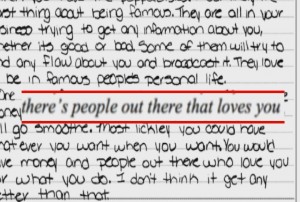 rst thing about being famous. They are all in your
siness trying to get any information about you,
hether its good or bad. Some of them will try to
nd any flaw about you and broadcast it. They love
be in famous people's personal life.
One
there's people out there that loves you
money
ll go smoothe. Most lickley you could have
hatever you want when you want. You would
ve money and people out there who love you
or what you do. I don't think it get any
etter than that.